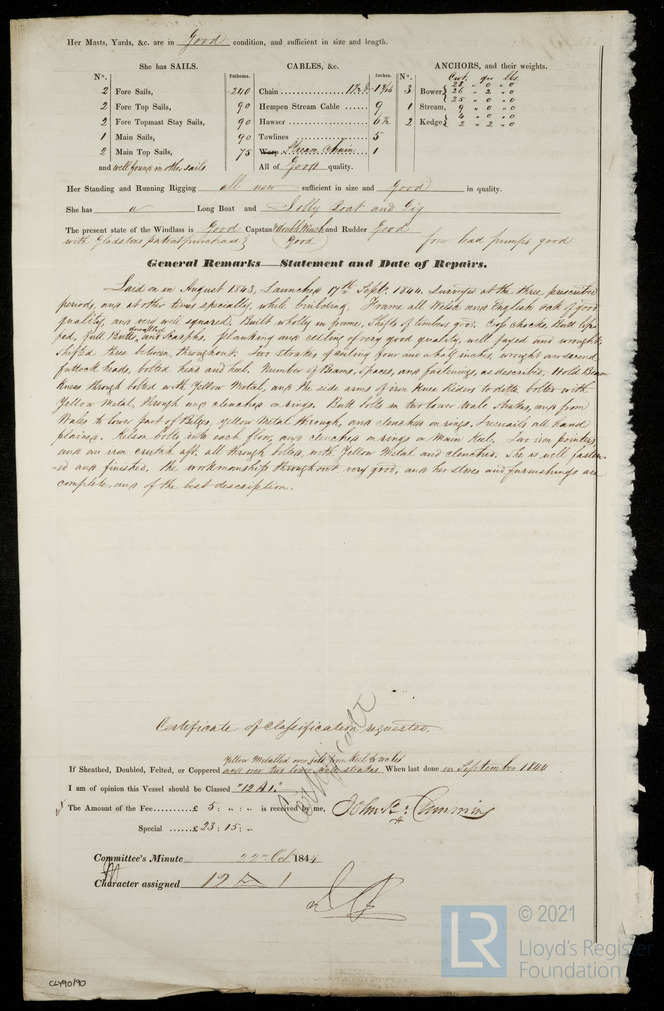 Her Masts, Yards, &c. are in Good condition, and sufficient in size and length.
She has SAILS. CABLES, &c. ANCHORS, and their weights.
N°. Fathoms. Inches. N°. Cwt. qrs lbs.
2 Fore Sails, 240 Chain 1 13/16 3 Bower, 28 " 0 " 0
2 Fore Top Sails, 90 Hempen Stream Cable 9 26 " 2 " 0
25 " 0 " 0
2 Fore Topmast Stay Sails, 90 Hawser 6½ 1 Stream, 9 " 0 " 0
1 Main Sails, 90 Towlines 5 2 Kedge, 4 " 0 " 0
2 Main Top Sails, 75 Warp Stream Chain 1 2 " 2 " 0
and well found in other sails All of Good quality.
Her Standing and Running Rigging all new sufficient in size and Good in quality.
She has a Long Boat and Jolly Boat and Gig
The present state of the Windlass is Good Capstan & double Winch and Rudder Good
with Gladstones patent purchase Good four lead pumps good
General Remarks—Statement and Date of Repairs.
Laid on in August 1843, Launched 17th Septr. 1844. Surveyed at the three prescribed
periods, and at other times specially, while building. Frame all Welsh and English oak of good
quality, and very well squared. Built wholly in frame, Shifts of timbers good. Coss chocks, Butt
ped, full Butts, and Scarphs. Planking and ceiling of very good quality, well fayed and wrought.
Shifted three between throughout. Two strakes of ceiling four and a half inches, wrought on second
futtock heads, bolted head and heel. Number of Beams, Spaces, and fastenings, as described. Hold Beam
Knees through bolted with Yellow Metal, and the side arms of iron Knee Riders to ditto, bolted with
Yellow Metal, through and clenched on rings. Butt bolts in two lower wale strakes, and from
Wales to lower part of Bilges, yellow Metal through, and clenched on rings. Treenails all hand
plained. Kelson bolts into each floor, and clenched on rings on Main Keel. Two iron pointers,
and an iron crutch aft, all through bolted, with Yellow Metal and clenched. She is well fasten-
ed and finished. The workmanship throughout very good, and her stores and furnishings are
complete, and of the best description.
Certificate of Classification requested.
Certificate
Yellow Metalled over felt from Keel to wales
If Sheathed, Doubled, Felted, or Coppered and over two lower wale strakes When last done in September 1844
I am of opinion this Vessel should be Classed "12 A1."
The Amount of the Fee......£ 5 " " " is received by me, John Cummins
Special ......£ 23 : 15 : "
Committee's Minute 22nd Oct 1844
Character assigned 12 A 1
CLY90/90
LR
© 2021
Lloyd's Register
Foundation